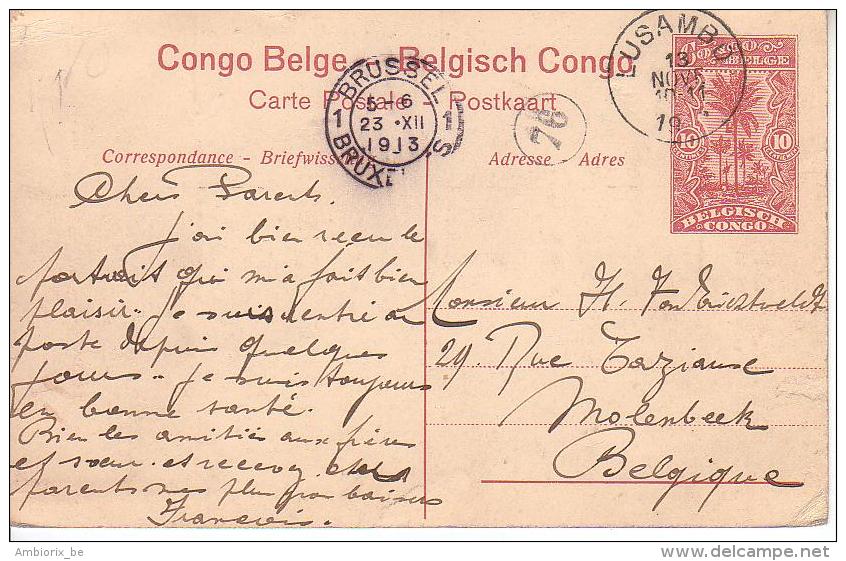 Congo Belge - Belgisch Congo
Carte Postale - Postkaart
Correspondance - Briefwiss
Adresse Adres
BRUSSEL
1 5-6 1
23 · XII
1913
BRUXELLES
76
LUSAMBO
13
NOV
19
CONGO
BELGE
10 10
BELGISCH
CONGO
Chers Parents.
j'ai bien reçu le
portrait qui m'a fait bien
plaisir. je suis rentré au
poste depuis quelques
jours. je suis toujours
en bonne santé.
Bien les amitiés aux frères
et sœur. et recevez chers
parents mes plus gros baisers
François.
Monsieur H.
29. Rue
Molenbeek
Belgique
Ambiorix_be
delcampe.net